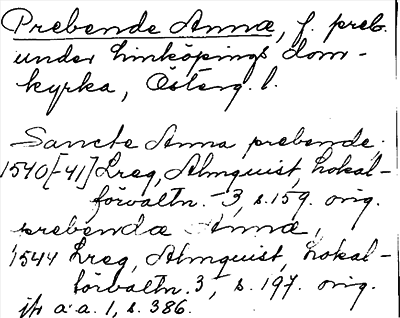 Prebende Annæ, f. preb.
under Linköpings dom-
kyrka, Österg. l.
Sancte Anna prebende
1540[-41] Lreg, Almquist, Lokal-
förvaltn. 3, s. 159. orig.
prebendæ Annæ,
1544 Lreg, Almquist, Lokal-
förvaltn. 3, s. 197. orig.
jfr a.a. 1, s. 386.